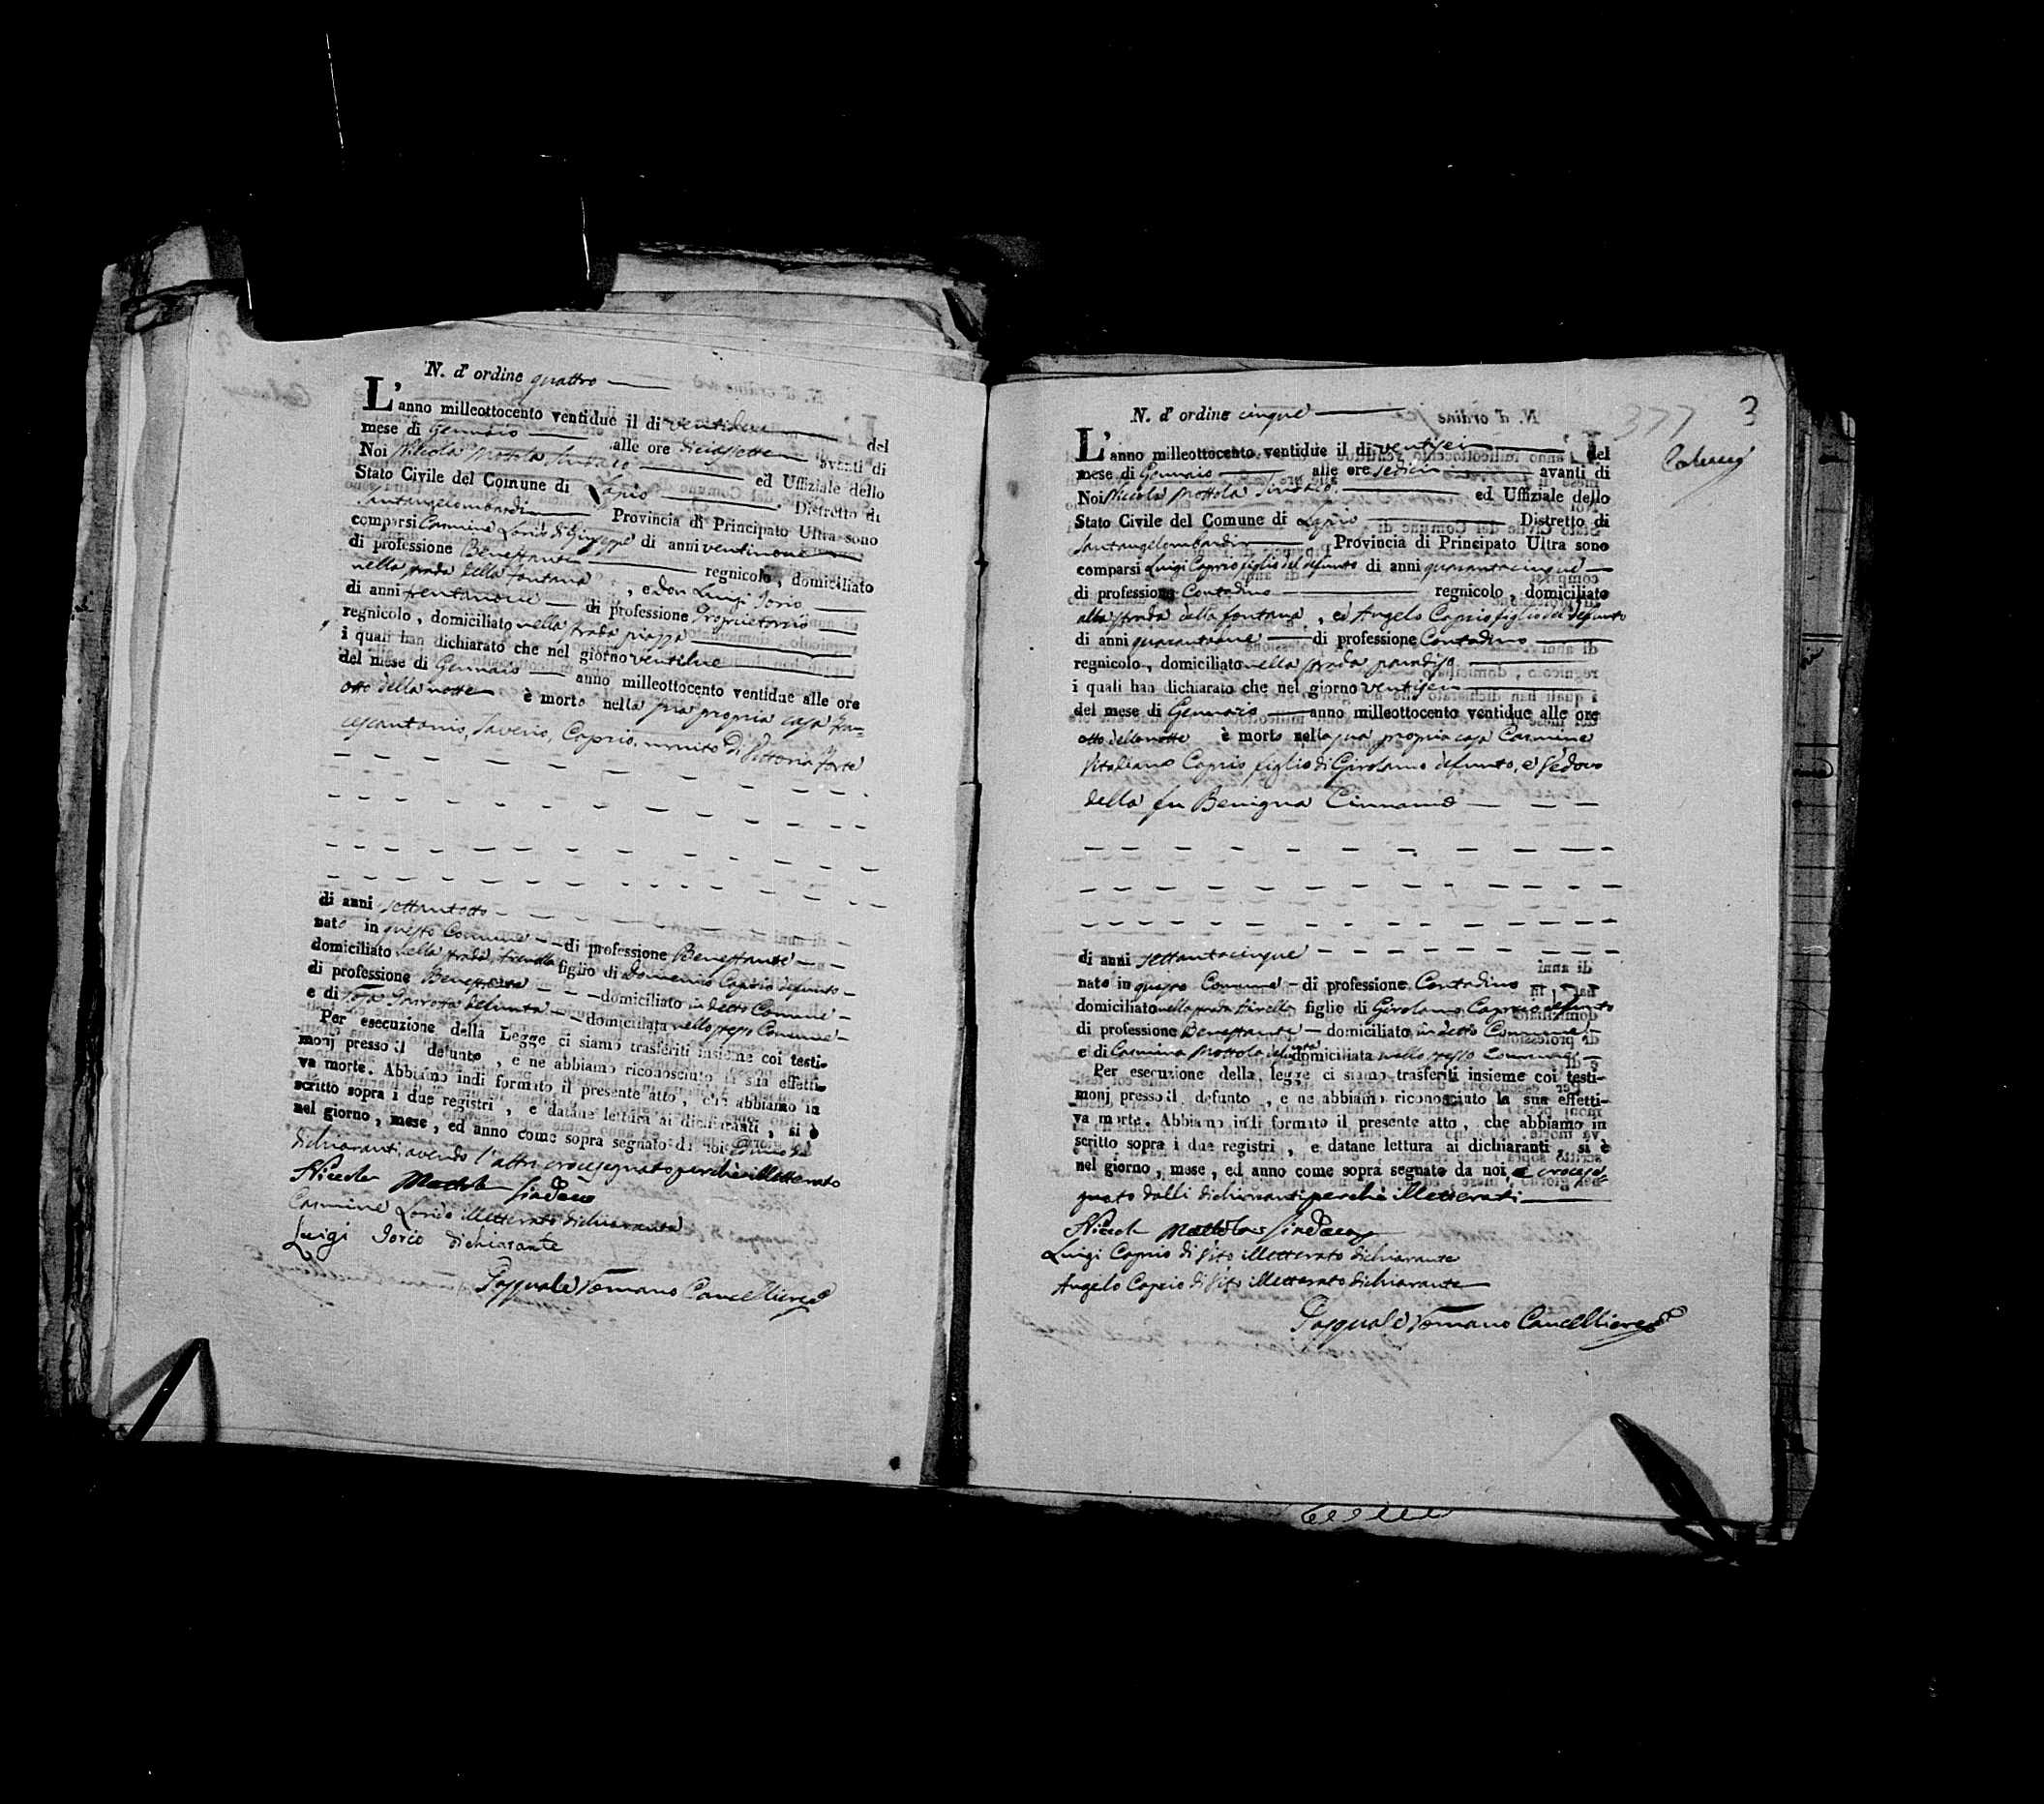 N. d' ordine quattro
L'anno milleottocento ventidue il dì ventidue del
mese di Gennaro alle ore diciassette avanti di
Noi Niccola Mottola Sindaco ed Uffiziale dello
Stato Civile del Comune di Lapio Distretto di
Santangelombardi Provincia di Principato Ultra sono
comparsi Carmine Lonito di Giuseppe di anni ventinove
di professione Benestante regnicolo, domiciliato
nella strada della fontana, e don Luigi Iorio
di anni trentanove di professione Proprietario
regnicolo, domiciliato nella strada piazza
i quali han dichiarato che nel giorno ventidue
del mese di Gennaro anno milleottocento ventidue alle ore
otto della notte è morto nella sua propria casa Fran=
cescantonio, Saverio, Caprio, marito di Vittoria Forte
di anni settantotto
nato in questo Comune di professione Benestante
domiciliato nella strada figlio di Domenico Caprio defunto
di professione Benestante domiciliato in detto Comune
e di defunta domiciliata nello stesso Comune
Per esecuzione della Legge ci siamo trasferiti insieme coi testi-
monj presso il defunto, e ne abbiamo riconosciuto la sua effetti-
va morte. Abbiamo indi formato il presente atto, che abbiamo in
scritto sopra i due registri, e datane lettura ai dichiaranti, si è
nel giorno, mese, ed anno come sopra segnato da noi
dichiaranti avendo l'altro crocesegnato perchè illetterato
Niccola Mottola Sindaco
Carmine Lonito illetterato dichiarante
Luigi Iorio dichiarante
Pasquale Romano Cancelliere
377 3
N. d' ordine cinque
L'anno milleottocento ventidue il dì ventisei del
mese di Gennaro alle ore sedici avanti di
Noi Niccola Mottola Sindaco ed Uffiziale dello
Stato Civile del Comune di Lapio Distretto di
Santangelombardi Provincia di Principato Ultra sono
comparsi Luigi Caprio figlio del defunto di anni quarantacinque
di professione Contadino regnicolo, domiciliato
alla strada della fontana, ed Angelo Caprio figlio del defunto
di anni quarantanove di professione Contadino
regnicolo, domiciliato nella strada paradiso
i quali han dichiarato che nel giorno ventisei
del mese di Gennaro anno milleottocento ventidue alle ore
otto della notte è morto nella sua propria casa Carmine
Vitaliano Caprio figlio di Girolamo defunto, e Vedovo
della fu Benigna Cinnamo
di anni settantacinque
nato in questo Comune di professione Contadino
domiciliato nella strada figlio di Girolamo Caprio defunto
di professione Benestante domiciliato in detto Comune
e di Carmina Mottola defunta domiciliata nello stesso Comune
Per esecuzione della legge ci siamo trasferiti insieme coi testi-
monj presso il defunto, e ne abbiamo riconosciuto la sua effetti-
va morte. Abbiamo indi formato il presente atto, che abbiamo in
scritto sopra i due registri, e datane lettura ai dichiaranti, si è
nel giorno, mese, ed anno come sopra segnato da noi, e crocese=
gnato dalli dichiaranti perchè illetterati
Niccola Mottola Sindaco
Luigi Caprio di Vito illetterato dichiarante
Angelo Caprio di Vito illetterato dichiarante
Pasquale Romano Cancelliere